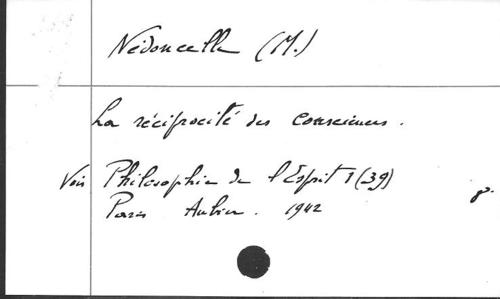 Nédoncelle (M.)
La réciprocité des consciences.
Voir Philosophie de l'Esprit (39)
Paris Aubier. 1942
8.